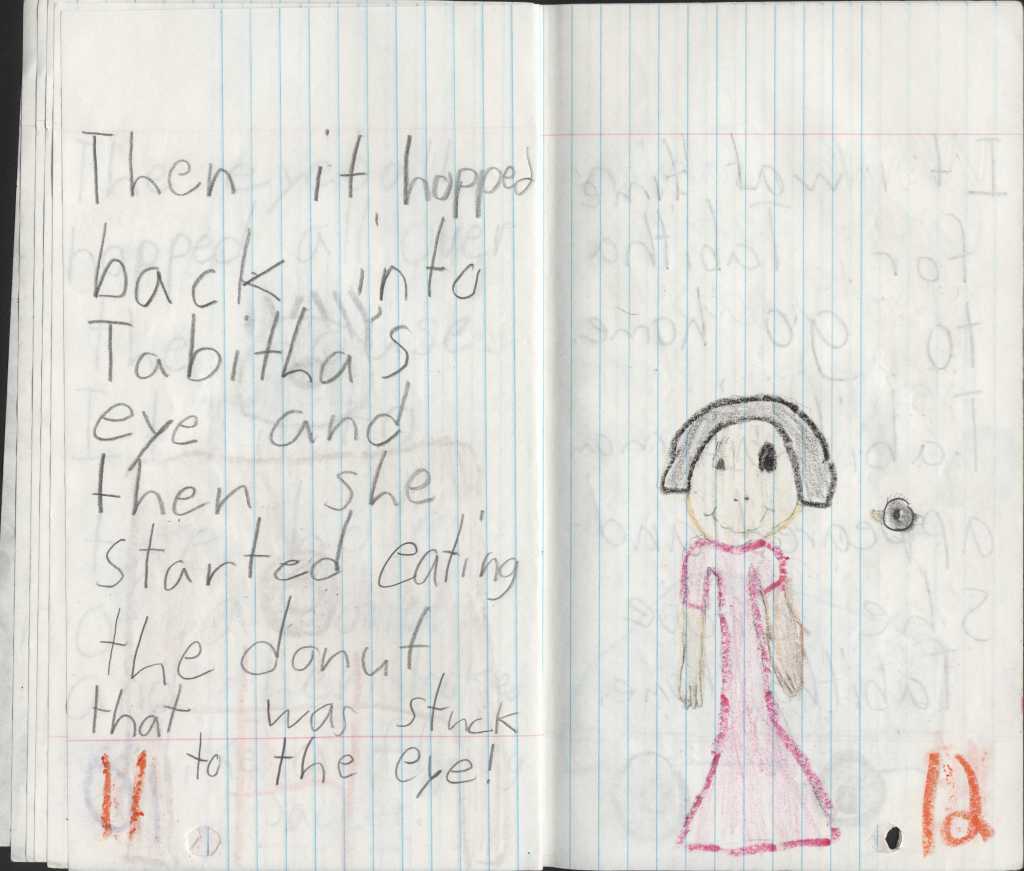 Then it hopped
back into
Tabitha's
eye and
then she
started eating
the donut
that was stuck
to the eye!
11
12